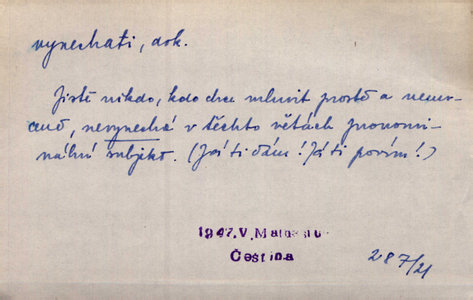 vynechati, dok.
Jistě nikdo, kdo chce mluvit prostě a nenu-
ceně, nevynechá v těchto větách pronomi-
nální subjekt. (Já ti dám! Já ti povím!)
1947.V. Mathesius
Čeština
287/21